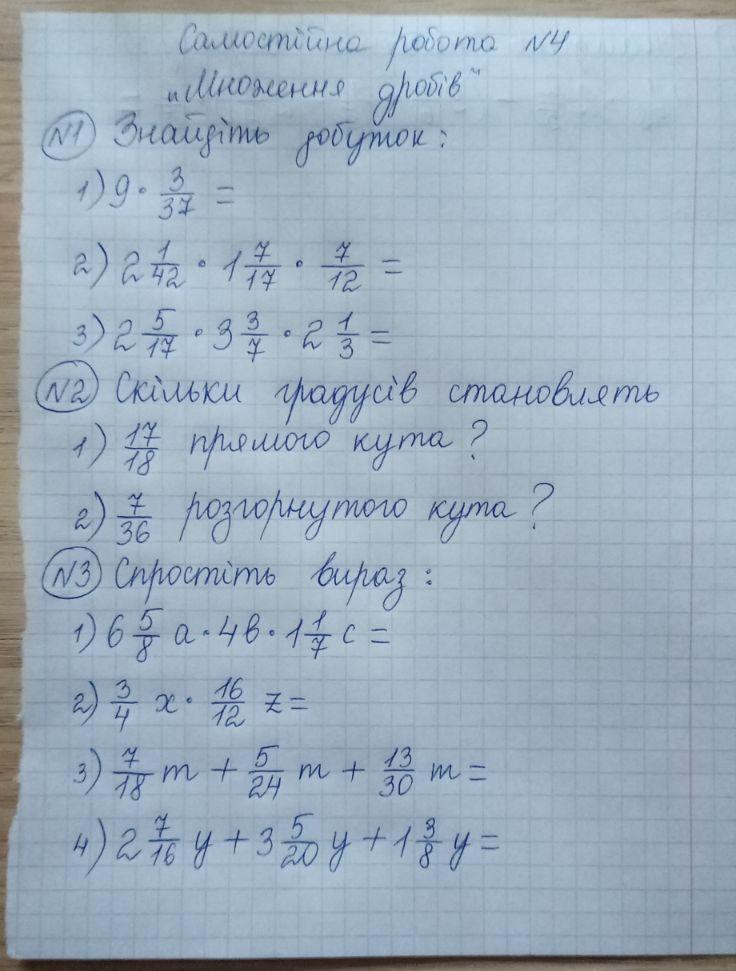 Самостійна робота N4
„Множення дробів"
N1 Знайдіть добуток:
1) 9 · 3/37 =
2) 2 1/42 · 1 7/17 · 7/12 =
3) 2 5/17 · 3 3/7 · 2 1/3 =
N2 Скільки градусів становлять
1) 17/18 прямого кута?
2) 7/36 розгорнутого кута?
N3 Спростіть вираз:
1) 6 5/8 a · 4b · 1 1/7 c =
2) 3/4 x · 16/12 z =
3) 7/18 m + 5/24 m + 13/30 m =
4) 2 7/16 y + 3 5/20 y + 1 3/8 y =